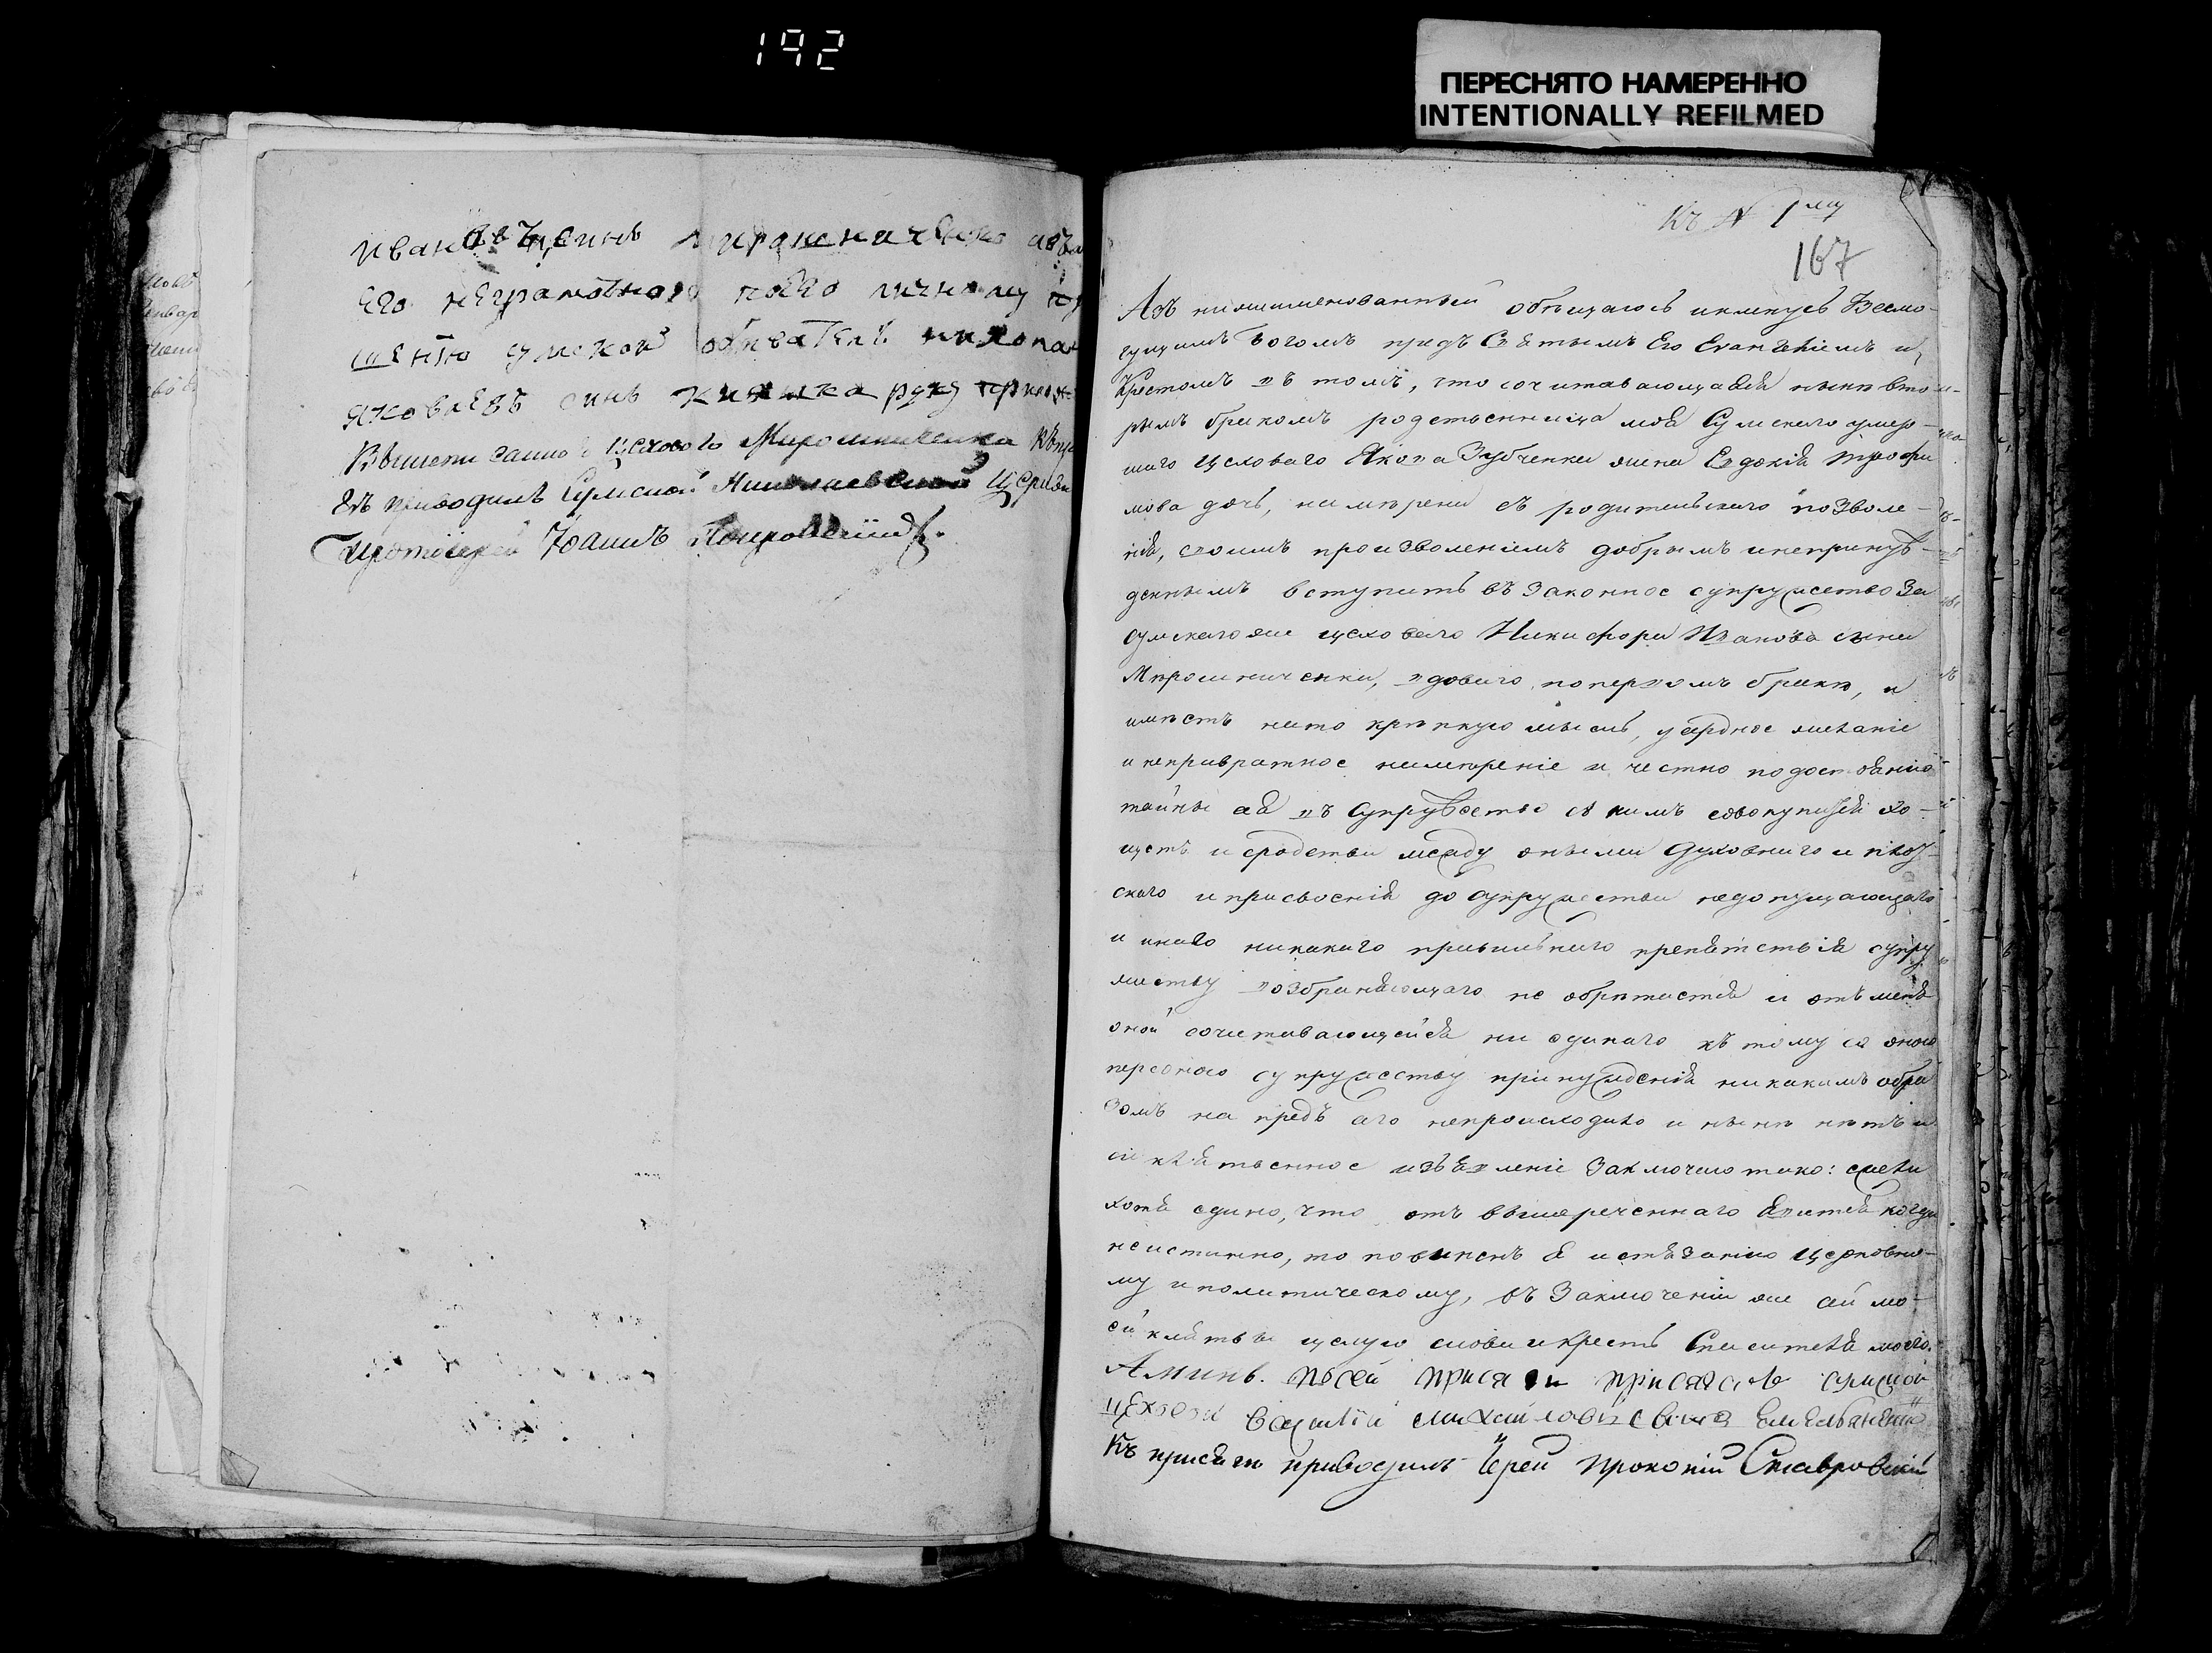 192
ПЕРЕСНЯТО НАМЕРЕННО
INTENTIONALLY REFILMED
Ивановъ синъ
Его неграмотного поЕго личному
шЕнїю сумской обиватель
яковлЕвъ синъ Кияшка руку
Вышеписанного Цеховаго Мирошниченка
Въ приводилъ Сумской Николаевской Церкви
Протоіерей Іоаннъ
Къ № 1му
167
Азъ нижеименованный обѣщаюсь и кленусь Всемо-
гущимъ Богомъ предъ Святымъ Его Евангеліемъ и
Крестомъ въ томъ, что сочитавающаяся нынѣ вто-
рымъ бракомъ родственница моя Сумскаго умер-
шаго цеховаго Якова Зубченка жена Евдокія Трофи
мова дочь, намѣрена съ родительскаго позволе-
нія, своимъ произволеніемъ добрымъ и непринуж-
деннымъ вступить въ законное супружество за
сумскаго же цеховаго Никифора Иванова сына
Мирошниченка, вдоваго по первомъ бракѣ, и
имѣетъ на то крѣпкую мысль, усердное желаніе
и непривратное намѣреніе и честно по достоянію
тайны ея въ супружество съ нимъ совокупитися хо-
щетъ и сродства между оными духовнаго и плот-
скаго и присвоенія до супружества недопущающаго
и инаго никакаго правильнаго препятствія супру
жеству возбраняющаго не обрѣтается и отъ меня
оной сочитавающейся ни единаго къ тому
супружеству принужденія никакимъ обра
зомъ на предъ сего непроисходило и нынѣ нѣтъ и
сіе клятвенное изъявленіе заключаю тако: ежели
хотя едино, что отъ вышереченнаго явится когда
неистинно, то повиненъ я истязанію церковно-
му и политическому, въ заключеніи же сей мо-
ей клятвы целую слова и крестъ Спасителя моего.
Аминь. Посей присяги присягалъ сумской
цЕховий Василїй Михайловъ синъ
Къ присяги приводилъ Іерей Прокопій Ставровскій